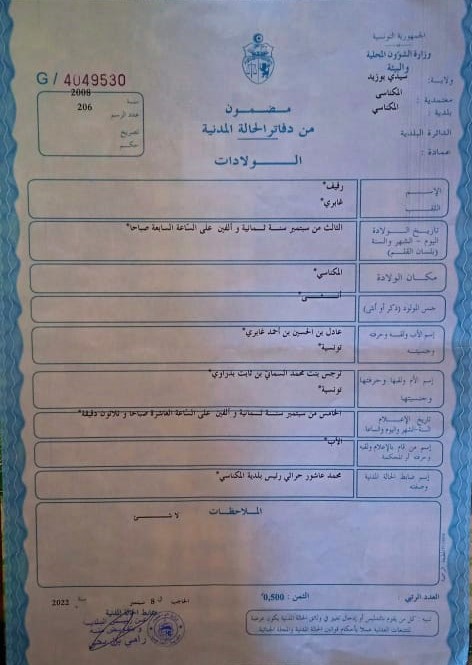 الجمهورية التونسية
وزارة الشؤون المحلية
والبيئة
ولاية: سيدي بوزيد
معتمدية: المكناسي
بلدية: المكناسي
الدائرة البلدية:
عمادة:
G / 4049530
سنة 2008
عدد الرسم 206
تصريح
حكم
مضمون
من دفاتر الحالة المدنية
الولادات
الإسم رفيف*
اللقب غابري*
تاريخ الولادة
اليوم - الشهر والسنة
(بلسان القلم)
الثالث من سبتمبر سنة ثمانية و ألفين على السّاعة السابعة صباحا*
مكان الولادة المكناسي*
جنس المولود (ذكر أو أنثى) أنثى*
إسم الأب ولقبه وحرفته
وجنسيته
عادل بن الحسين بن أحمد غابري*
تونسية*
إسم الأم ولقبها وحرفتها
وجنسيتها
نرجس بنت محمد السماتي بن ثابت بدراوي*
تونسية*
تاريخ الإعلام
السنة-الشهر واليوم والساعة
الخامس من سبتمبر سنة ثمانية و ألفين على السّاعة العاشرة صباحا و ثلاثون دقيقة*
إسم من قام بالإعلام ولقبه
وحرفته أو المحكمة
الأب*
إسم ضابط الحالة المدنية
وصفته
محمد عاشور حراثي رئيس بلدية المكناسي*
الملاحظات
لا شئ
العدد الرتبي:
الثمن: 0,500
المكناسي في 8 سبتمبر سنة 2022
ضابط الحالة المدنية
تنبيه: كل من يقوم بالتدليس أو بإدخال تغيير في وثائق الحالة المدنية يكون عرضة
للتتبعات العدلية عملا بأحكام قوانين الحالة المدنية والمجلة الجنائية